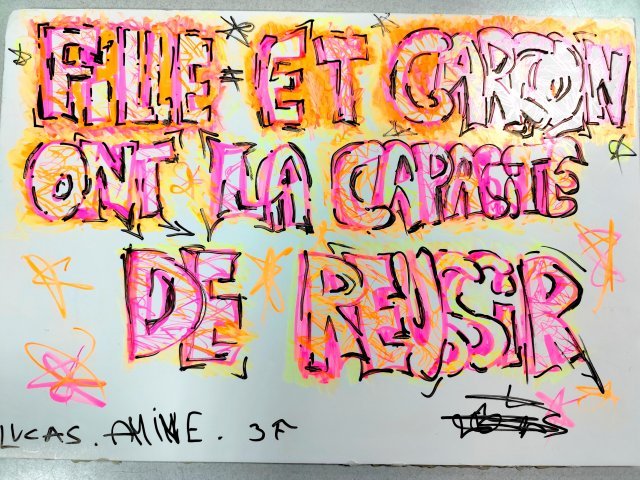 FILLE ET GARÇON
ONT LA CAPACITE
DE REUSSIR
LUCAS. AMINE. 3F